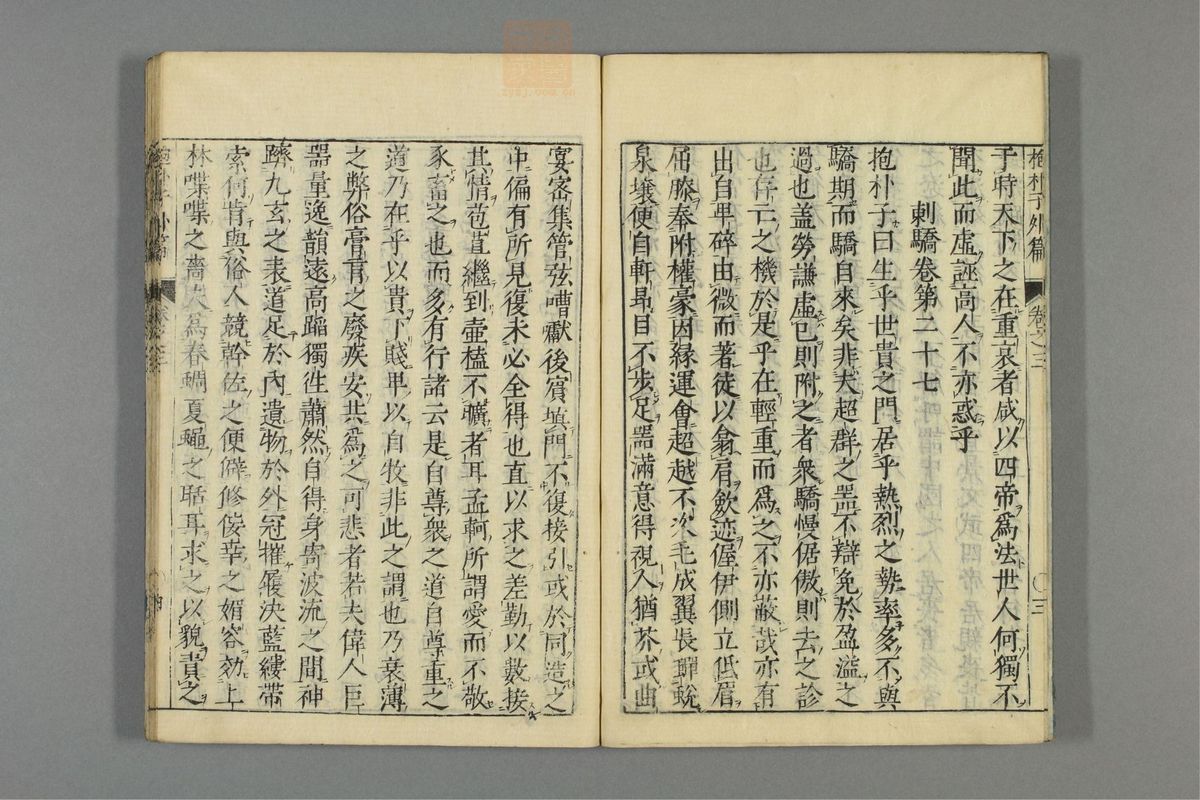 抱朴子外篇 卷之三 ○三
于時天下之在重哀者咸以四帝爲法世人何獨不
聞此而虛誣高人不亦惑乎
刺驕卷第二十七
抱朴子曰生乎世貴之門居乎熱烈之勢率多不與
驕期而驕自來矣非夫超群之器不辯免於盈溢之
過也蓋勞謙虛己則附之者衆驕慢倨傲則去之診
也存亡之機於是乎在輕重而爲之不亦蔽哉亦有
出自卑碎由微而著徒以翕肩歛迹偓伊側立低眉
屈膝奉附權豪因緣運會超越不次毛成翼長蟬蛻
泉壤便自軒昂目不步足器滿意得視人猶芥或曲
宴密集管弦嘈囐後賓填門不復接引或於同造之
中偏有所見復未必全得也直以求之差勤以數接
其情苞苴繼到壺榼不曠者耳孟軻所謂愛而不敬
豕畜之也而多有行諸云是自尊衆之道自尊重之
道乃在乎以貴下賤卑以自牧非此之謂也乃衰薄
之弊俗膏肓之廢疾安共爲之可悲者若夫偉人巨
器量逸韻遠高蹈獨徃蕭然自得身寄波流之間神
躋九玄之表道足於內遺物於外冠摧履決藍縷帶
索何肯與俗人競幹佐之便僻修佞幸之媚容効上
林喋喋之嗇夫爲春蜩夏蠅之聒耳求之以貌責之